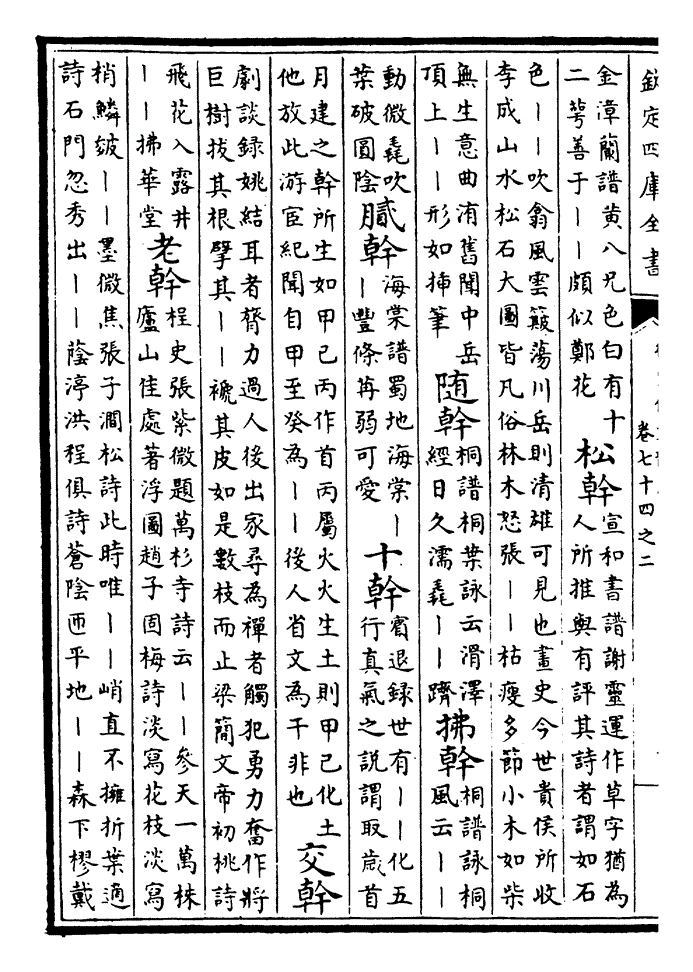 欽定四庫全書
卷七十四之二
金漳蘭譜黃八兄色白有十
二萼善于丨丨頗似鄭花
松幹
宣和書譜謝靈運作草字猶為
人所推與有評其詩者謂如石
色丨丨吹翕風雲簸蕩川岳則清雄可見也畫史今世貴侯所收
李成山水松石大圖皆凡俗林木怒張丨丨枯瘦多節小木如柴
無生意曲洧舊聞中岳
頂上丨丨形如插筆
隨幹
桐譜桐葉詠云滑澤
經日久濡毳丨丨躋
拂幹
桐譜詠桐
風云丨丨
動微毳吹
葉破圓陰
膩幹
海棠譜蜀地海棠丨
丨豐條苒弱可愛
十幹
賓退錄世有丨丨化五
行真氣之說謂取歲首
月建之幹所生如甲己丙作首丙屬火火生土則甲己化土
他放此游宦紀聞自甲至癸為丨丨後人省文為干非也
交幹
劇談錄姚結耳者膂力過人後出家尋為禪者觸犯勇力奮作將
巨樹拔其根擘其丨丨褫其皮如是數枝而止梁簡文帝初桃詩
飛花入露井
丨丨拂華堂
老幹
桯史張紫微題萬杉寺詩云丨丨參天一萬株
廬山佳處著浮圖趙子固梅詩淡寫花枝淡寫
梢鱗皴丨丨墨微焦張子澗松詩此時唯丨丨峭直不擁折葉適
詩石門忽秀出丨丨蔭渟洪程俱詩蒼陰匝平地丨丨森下樛戴